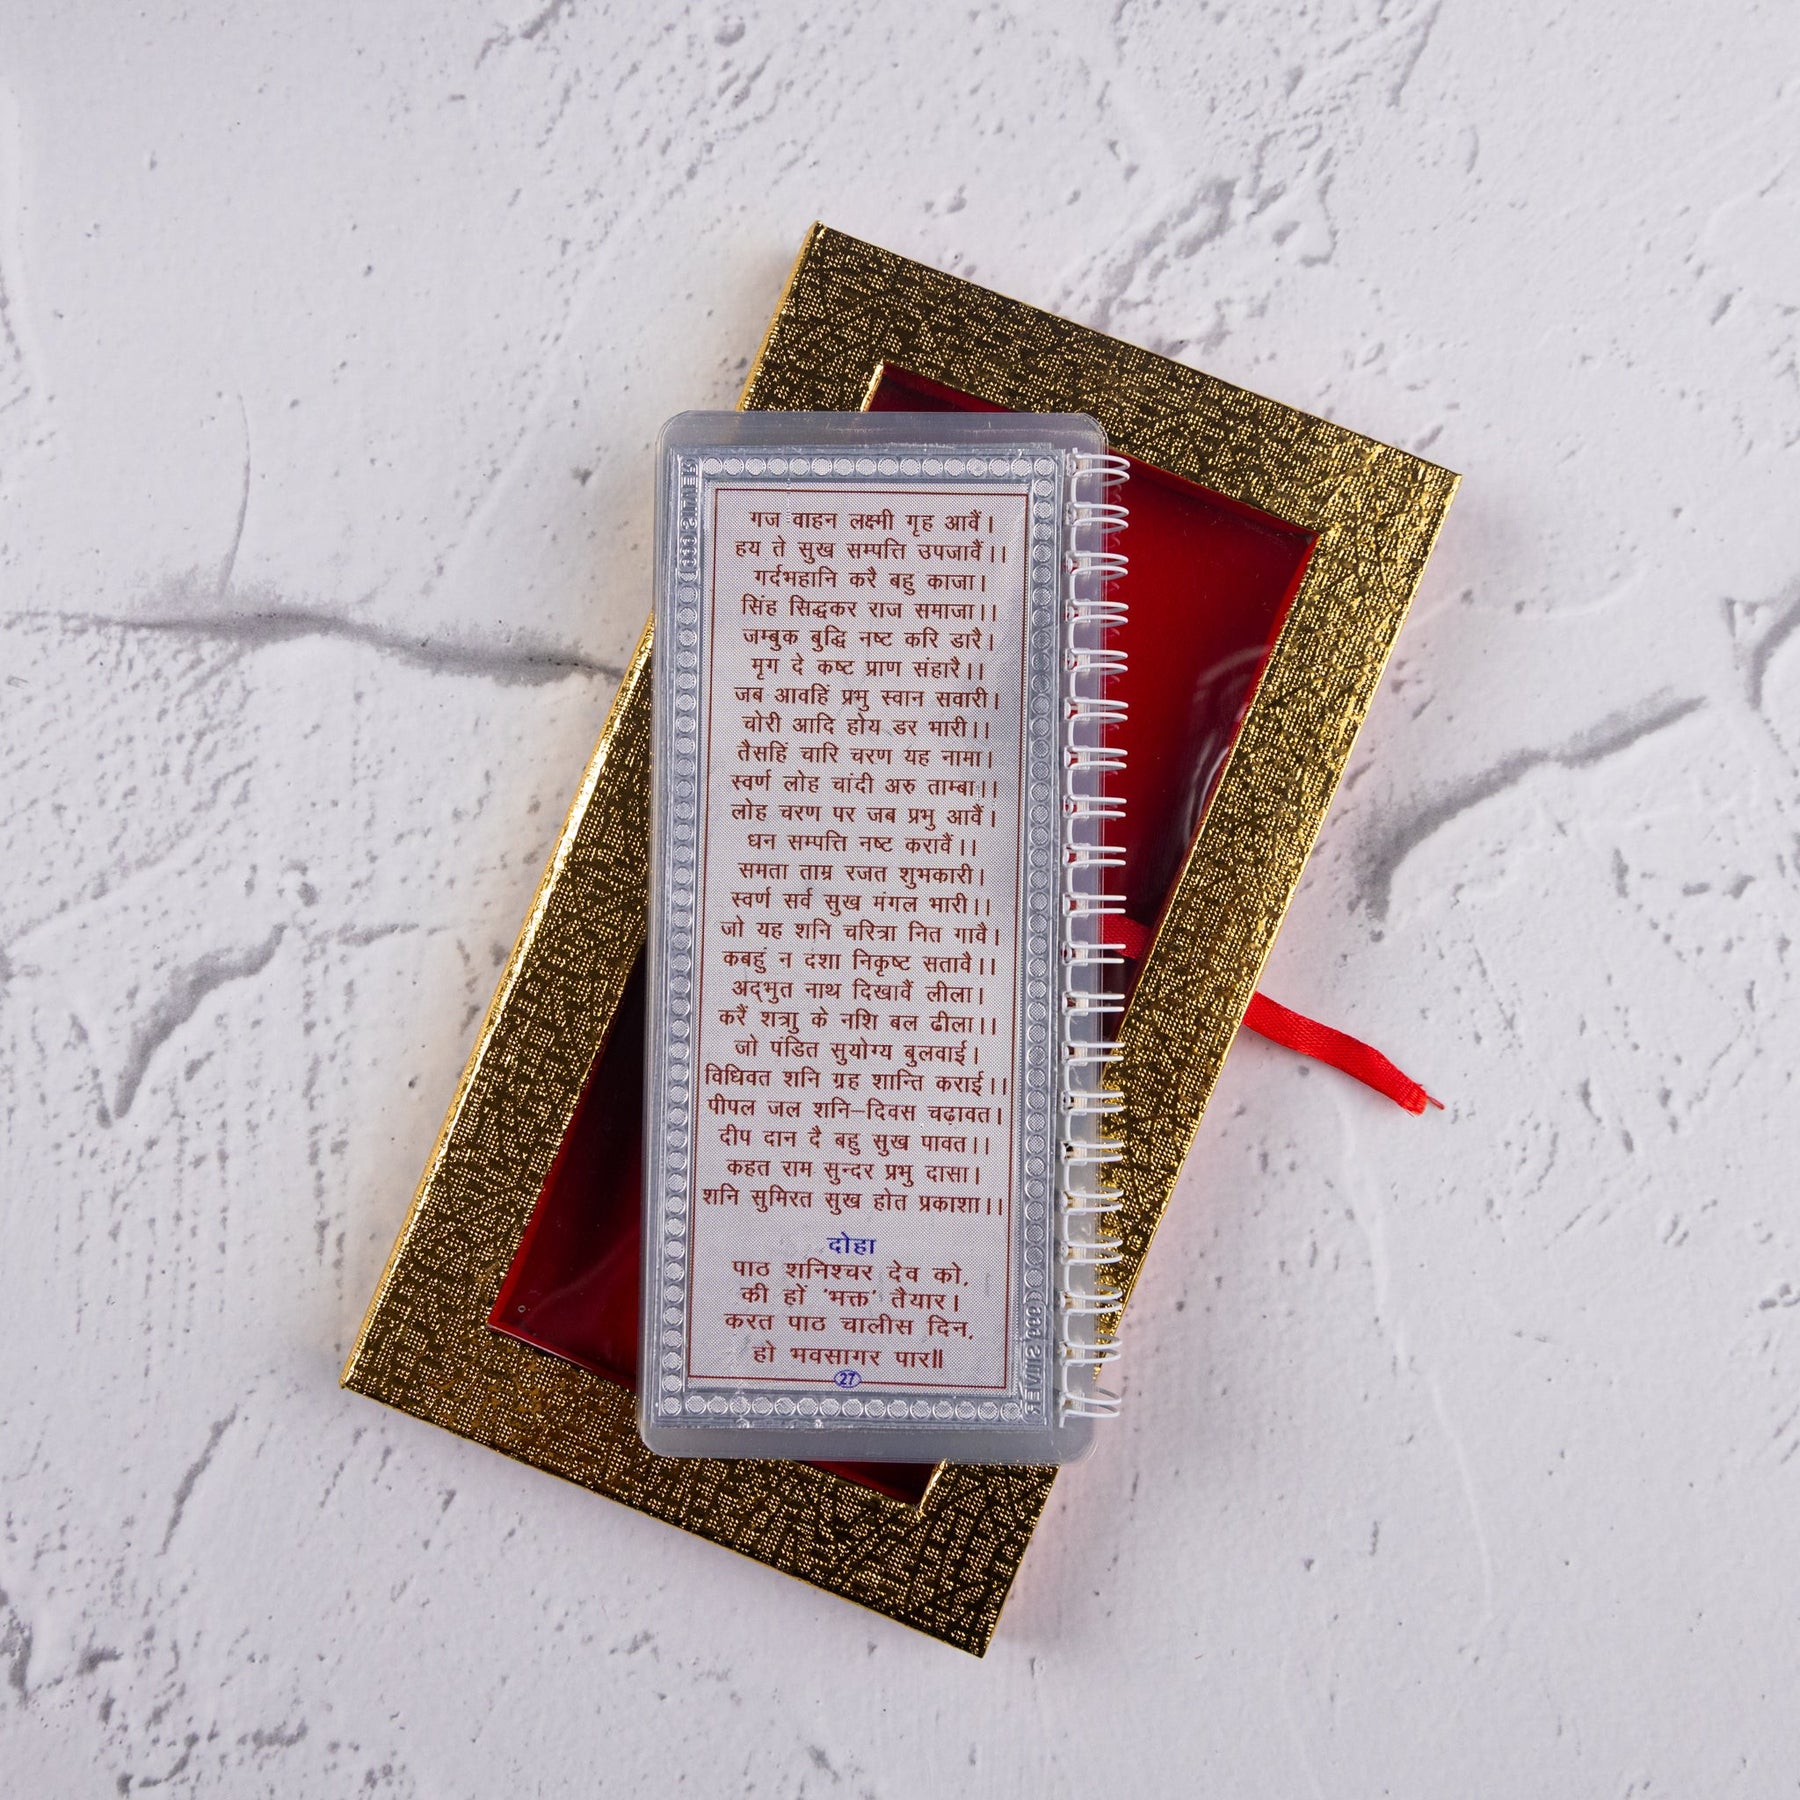 गज वाहन लक्ष्मी गृह आवैं।
हय ते सुख सम्पत्ति उपजावैं।।
गर्दभहानि करै बहु काजा।
सिंह सिद्धकर राज समाजा।।
जम्बुक बुद्धि नष्ट करि डारै।
मृग दे कष्ट प्राण संहारै।।
जब आवहिं प्रभु स्वान सवारी।
चोरी आदि होय डर भारी।।
तैसहिं चारि चरण यह नामा।
स्वर्ण लोह चांदी अरु ताम्बा।।
लोह चरण पर जब प्रभु आवैं।
धन सम्पत्ति नष्ट करावैं।।
समता ताम्र रजत शुभकारी।
स्वर्ण सर्व सुख मंगल भारी।।
जो यह शनि चरित्रा नित गावै।
कबहुं न दशा निकृष्ट सतावै।।
अद्भुत नाथ दिखावैं लीला।
करैं शत्राु के नशि बल ढीला।।
जो पंडित सुयोग्य बुलवाई।
विधिवत शनि ग्रह शान्ति कराई।।
पीपल जल शनि–दिवस चढ़ावत।
दीप दान दै बहु सुख पावत।।
कहत राम सुन्दर प्रभु दासा।
शनि सुमिरत सुख होत प्रकाशा।।
दोहा
पाठ शनिश्चर देव को,
की हों 'भक्त' तैयार।
करत पाठ चालीस दिन,
हो भवसागर पार॥
27